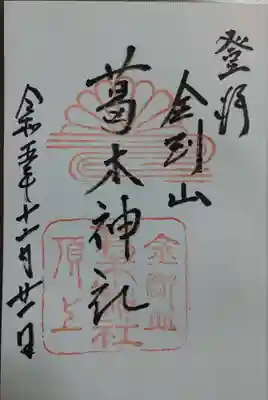 登拝
金剛山
葛木神社
令和五年十二月廿一日
金剛山
頂上